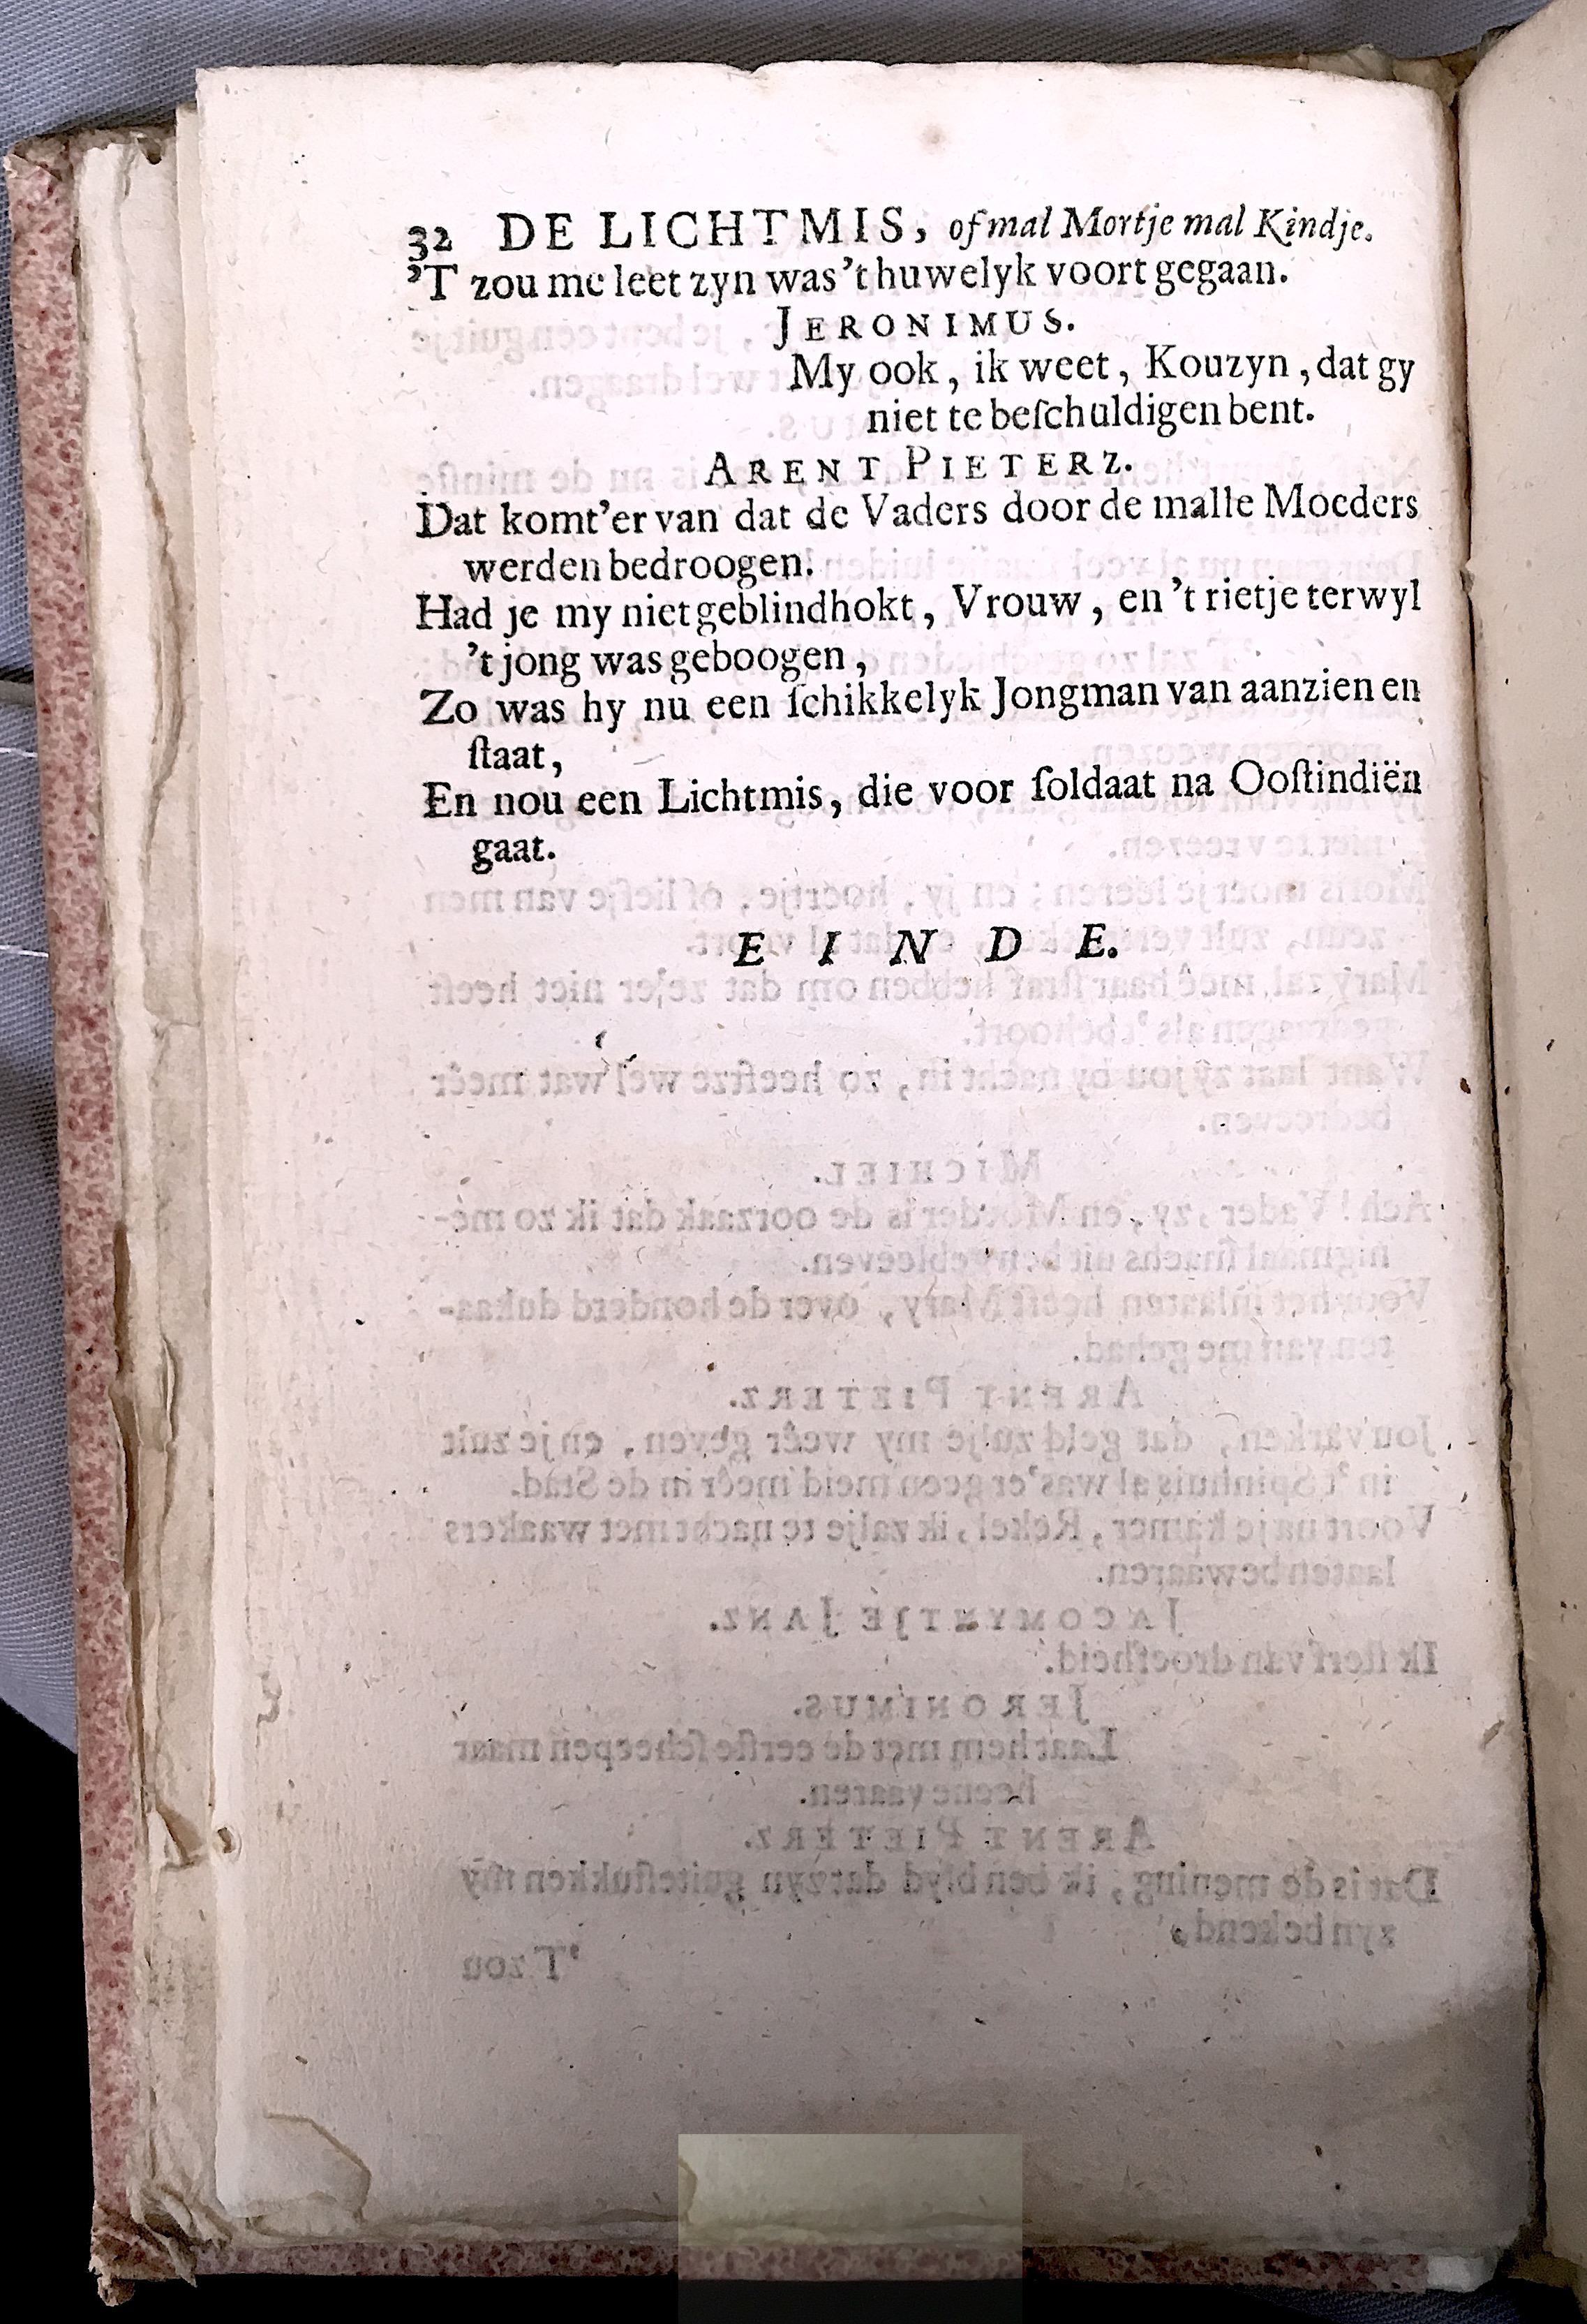 32 DE LICHTMIS, of mal Mortje mal Kindje.
'T zou me leet zyn was 't huwelyk voort gegaan.
JERONIMUS.
My ook, ik weet, Kouzyn, dat gy
niet te beſchuldigen bent.
ARENT PIETERZ.
Dat komt'er van dat de Vaders door de malle Moeders
werden bedroogen.
Had je my niet geblindhokt, Vrouw, en 't rietje terwyl
't jong was geboogen,
Zo was hy nu een ſchikkelyk Jongman van aanzien en
ſtaat,
En nou een Lichtmis, die voor ſoldaat na Ooſtindiën
gaat.
EINDE.